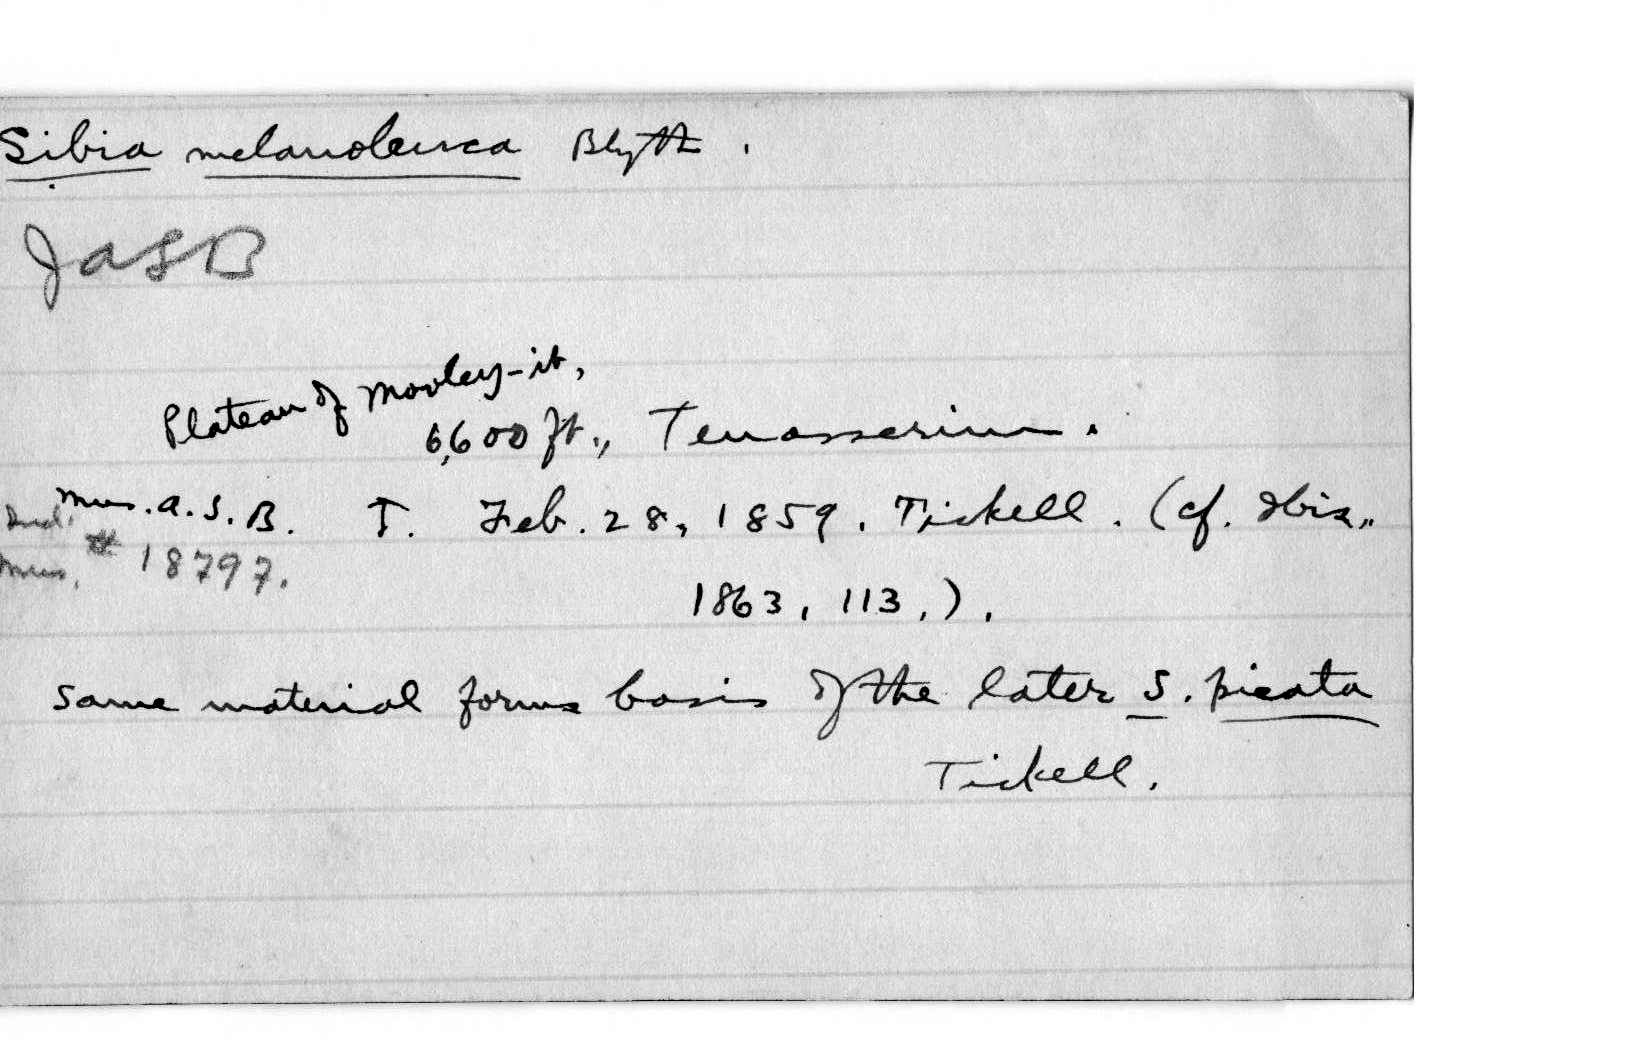 Sibia melanoleuca Blyth.
JASB
Plateau of Mooley-it,
6,600 ft., Tenasserim.
Mus. A.S.B. T. Feb. 28, 1859. Tickell. (cf. Ibis,,
Ind. Mus. # 18797.
1863, 113,).
Same material forms basis of the later S. picata
Tickell.